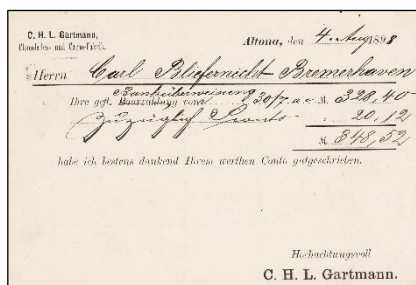 C. H. L. Gartmann,
Chocoladen- und Cacao-Fabrik.
Altona, den 4. Aug 1898
Herrn Carl Bliefernicht Bremerhaven
Banküberweisung
Ihre gefl. Baarzahlung vom 30/7. a.c. M. 328,40
zuzüglich Sconto " 20,12
M. 348,52
habe ich bestens dankend Ihrem werthen Conto gutgeschrieben.
Hochachtungsvoll
C. H. L. Gartmann.